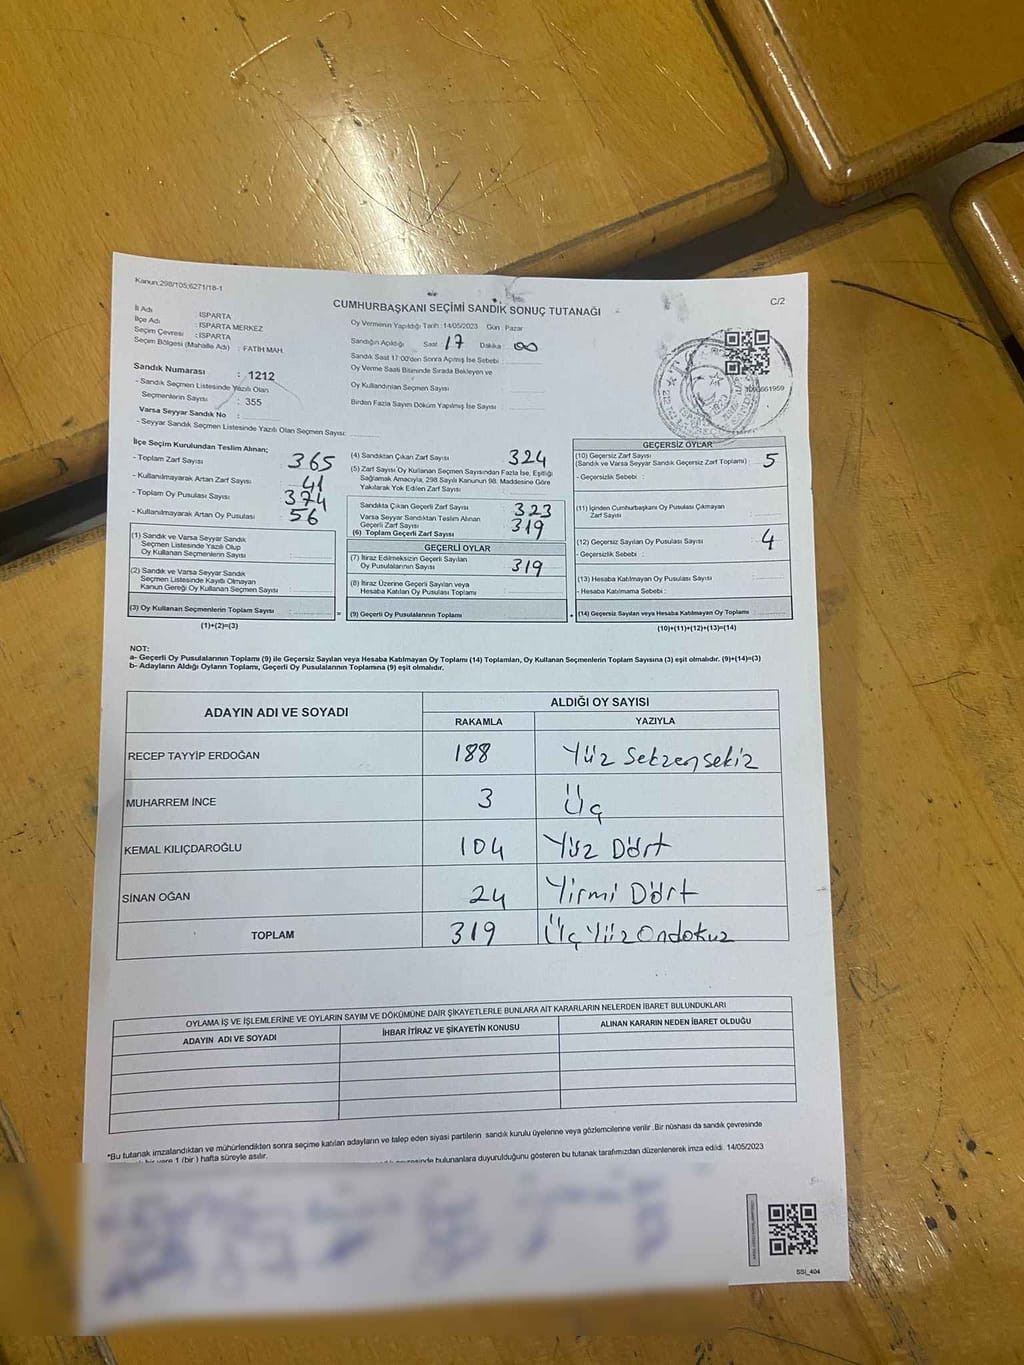 Kanun;298/105;6271/18-1
C/2
CUMHURBAŞKANI SEÇİMİ SANDIK SONUÇ TUTANAĞI
İl Adı : ISPARTA
İlçe Adı : ISPARTA MERKEZ
Seçim Çevresi : ISPARTA
Seçim Bölgesi (Mahalle Adı) : FATİH MAH.
Sandık Numarası : 1212
- Sandık Seçmen Listesinde Yazılı Olan
Seçmenlerin Sayısı : 355
Varsa Seyyar Sandık No :
- Seyyar Sandık Seçmen Listesinde Yazılı Olan Seçmen Sayısı:
Oy Vermenin Yapıldığı Tarih :14/05/2023 Gün Pazar
Sandığın Açıldığı Saat 17 Dakika 00
Sandık Saat 17:00'den Sonra Açımış İse Sebebi :
Oy Verme Saati Bitiminde Sırada Bekleyen ve
Oy Kullandırılan Seçmen Sayısı
Birden Fazla Sayım Döküm Yapılmış İse Sayısı :
3060661959
İlçe Seçim Kurulundan Teslim Alınan;
- Toplam Zarf Sayısı 365
- Kullanılmayarak Artan Zarf Sayısı 41
- Toplam Oy Pusulası Sayısı 374
- Kullanılmayarak Artan Oy Pusulası 56
(1) Sandık ve Varsa Seyyar Sandık
Seçmen Listesinde Yazılı Olup
Oy Kullanan Seçmenlerin Sayısı :
(2) Sandık ve Varsa Seyyar Sandık
Seçmen Listesinde Kayıtlı Olmayan
Kanun Gereği Oy Kullanan Seçmen Sayısı :
(3) Oy Kullanan Seçmenlerin Toplam Sayısı :
(1)+(2)=(3)
(4) Sandıktan Çıkan Zarf Sayısı 324
(5) Zarf Sayısı Oy Kullanan Seçmen Sayısından Fazla İse, Eşitliği
Sağlamak Amacıyla, 298 Sayılı Kanunun 98. Maddesine Göre
Yakılarak Yok Edilen Zarf Sayısı :
Sandıkta Çıkan Geçerli Zarf Sayısı 323
Varsa Seyyar Sandıktan Teslim Alınan
Geçerli Zarf Sayısı 319
(6) Toplam Geçerli Zarf Sayısı
GEÇERLİ OYLAR
(7) İtiraz Edilmeksizin Geçerli Sayılan
Oy Pusulalarının Sayısı : 319
(8) İtiraz Üzerine Geçerli Sayılan veya
Hesaba Katılan Oy Pusulası Toplamı :
= (9) Geçerli Oy Pusulalarının Toplamı
GEÇERSİZ OYLAR
(10) Geçersiz Zarf Sayısı
(Sandık ve Varsa Seyyar Sandık Geçersiz Zarf Toplamı) : 5
- Geçersizlik Sebebi :
(11) İçinden Cumhurbaşkanı Oy Pusulası Çıkmayan
Zarf Sayısı
(12) Geçersiz Sayılan Oy Pusulası Sayısı : 4
- Geçersizlik Sebebi :
(13) Hesaba Katılmayan Oy Pusulası Sayısı :
- Hesaba Katılmama Sebebi :
+ (14) Geçersiz Sayılan veya Hesaba Katılmayan Oy Toplamı
(10)+(11)+(12)+(13)=(14)
NOT:
a- Geçerli Oy Pusulalarının Toplamı (9) ile Geçersiz Sayılan veya Hesaba Katılmayan Oy Toplamı (14) Toplamları, Oy Kullanan Seçmenlerin Toplam Sayısına (3) eşit olmalıdır. (9)+(14)=(3)
b- Adayların Aldığı Oyların Toplamı, Geçerli Oy Pusulalarının Toplamına (9) eşit olmalıdır.
ADAYIN ADI VE SOYADI
ALDIĞI OY SAYISI
RAKAMLA YAZIYLA
RECEP TAYYİP ERDOĞAN 188 Yüz Seksensekiz
MUHARREM İNCE 3 Üç
KEMAL KILIÇDAROĞLU 104 Yüz Dört
SİNAN OĞAN 24 Yirmi Dört
TOPLAM 319 Üç Yüz Ondokuz
OYLAMA İŞ VE İŞLEMLERİNE VE OYLARIN SAYIM VE DÖKÜMÜNE DAİR ŞİKAYETLERLE BUNLARA AİT KARARLARIN NELERDEN İBARET BULUNDUKLARI
ADAYIN ADI VE SOYADI İHBAR İTİRAZ VE ŞİKAYETİN KONUSU ALINAN KARARIN NEDEN İBARET OLDUĞU
*Bu tutanak imzalandıktan ve mühürlendikten sonra seçime katılan adayların ve talep eden siyasi partilerin sandık kurulu üyelerine veya gözlemcilerine verilir .Bir nüshası da sandık çevresinde
bir yere 1 (bir ) hafta süreyle asılır.
bulunanlara duyurulduğunu gösteren bu tutanak tarafımızdan düzenlenerek imza edildi. 14/05/2023
SSI_404